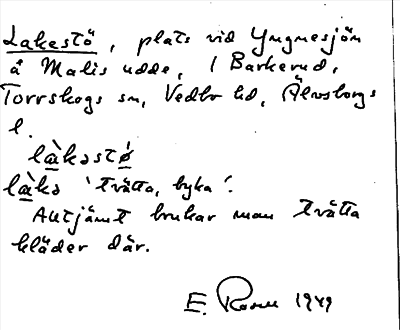 Lakestö, plats vid Yngnesjön
å Malis udde, i Barkerud,
Torrskogs sn, Vedbo hd, Älvsborgs
l.
là̱kəstǿ̱
là̱kə 'tvätta, byka'.
Alltjämt brukar man tvätta
kläder där.
E. 1949